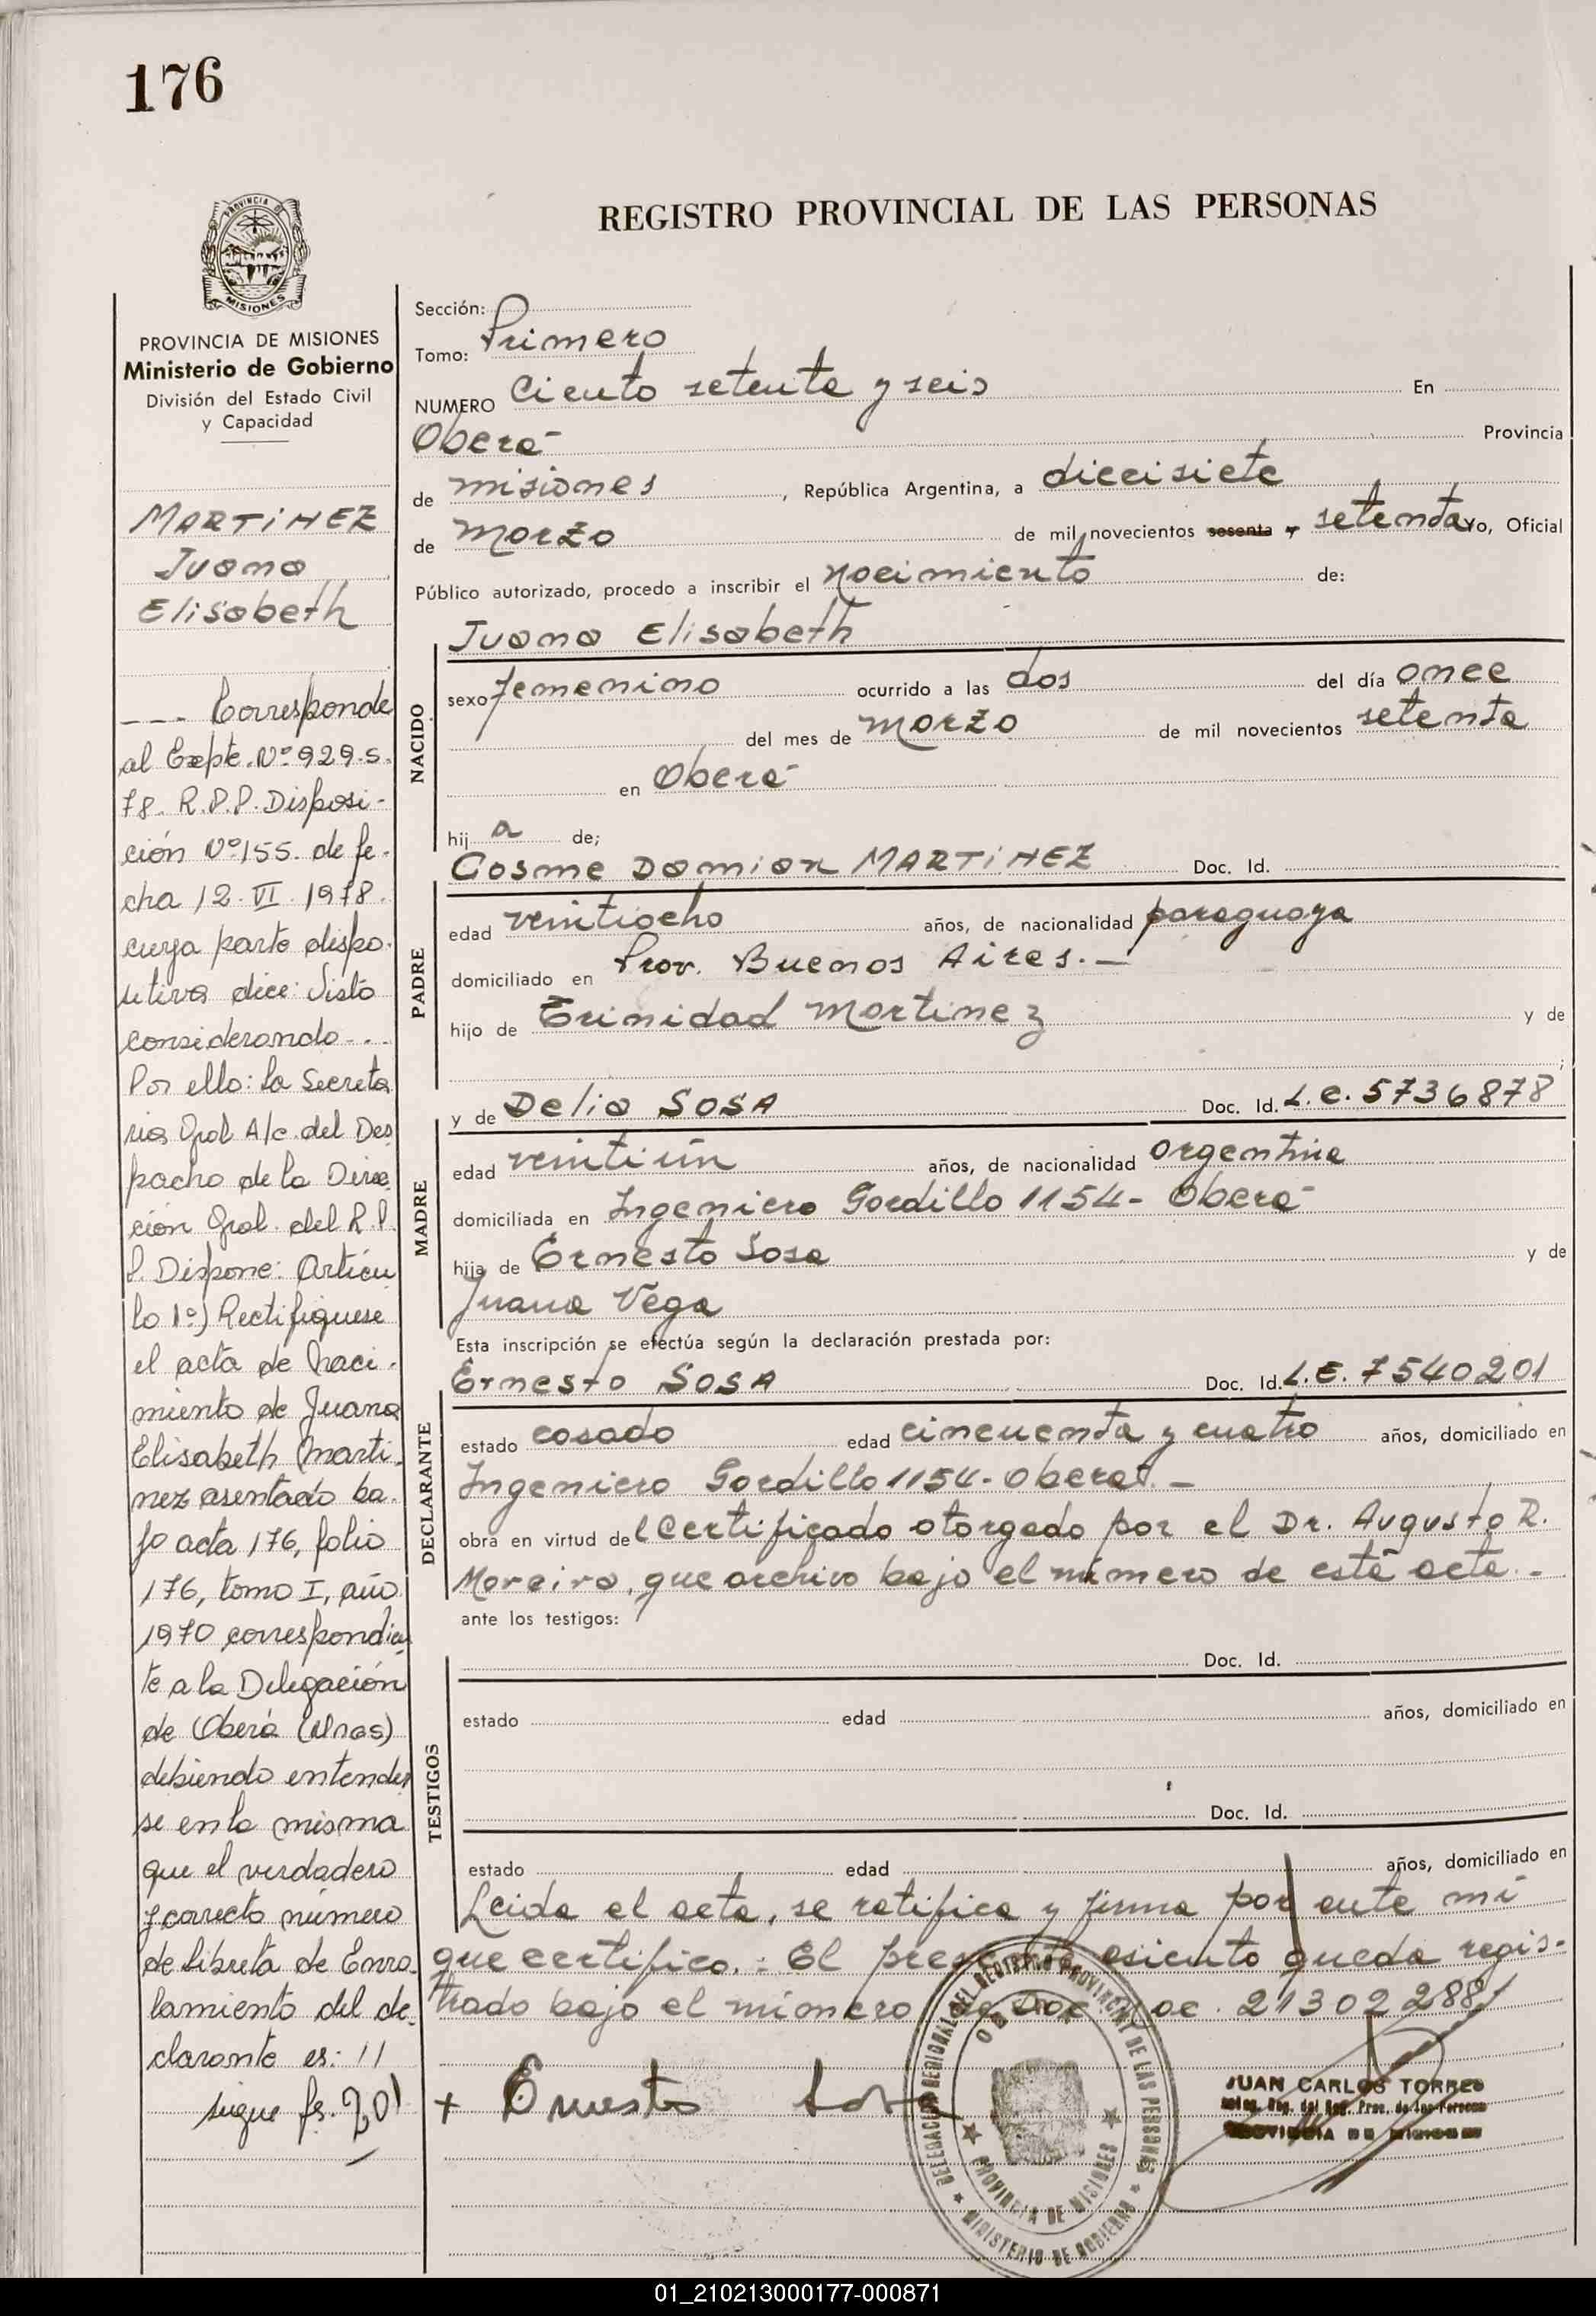 176
REGISTRO PROVINCIAL DE LAS PERSONAS
PROVINCIA DE
MISIONES
PROVINCIA DE MISIONES
Ministerio de Gobierno
División del Estado Civil
y Capacidad
MARTINEZ
Juana
Elisabeth
--- Corresponde
al Expte. Nº 929-S-
78. R.P.P. Disposi-
ción Nº 155. de fe-
cha 12-VI-1978.
cuya parte dispo-
sitiva dice: Visto
considerando...
Por ello: la Secreta
ria Gral A/c. del Des
pacho de la Direc
ción Gral. del R.P.
P. Dispone: Artícu
lo 1º) Rectifiquese
el acta de naci-
miento de Juana
Elisabeth Marti-
nez asentado ba-
jo acta 176, folio
176, tomo I, año
1970 correspondien
te a la Delegación
de Oberá (Mnes)
debiendo entender
se en la misma
que el verdadero
y correcto número
de Libreta de Enro-
lamiento del de-
clarante es: //
sigue fs. 201
Sección:
Tomo: Primero
NUMERO Ciento setenta y seis En
Oberá Provincia
de Misiones, República Argentina, a diecisiete
de Marzo de mil novecientos sesenta y setenta yo, Oficial
Público autorizado, procedo a inscribir el Nacimiento de:
Juana Elisabeth
NACIDO
sexo femenino ocurrido a las dos del día once
del mes de Marzo de mil novecientos setenta
en Oberá
hij a de;
Cosme Damian MARTINEZ Doc. Id.
PADRE
edad veintiocho años, de nacionalidad paraguaya
domiciliado en Prov. Buenos Aires.-
hijo de Trinidad Martinez y de
;
y de Delia SOSA Doc. Id. L.C. 5736878
MADRE
edad veintiún años, de nacionalidad argentina
domiciliada en Ingeniero Gordillo 1154- Oberá
hija de Ernesto Sosa y de
Juana Vega
Esta inscripción se efectúa según la declaración prestada por:
Ernesto SOSA Doc. Id. L.E. 7540201
DECLARANTE
estado casado edad cincuenta y cuatro años, domiciliado en
Ingeniero Gordillo 1154- Oberá.-
obra en virtud del Certificado otorgado por el Dr. Augusto R.
Moreira, que archivo bajo el número de esta acta.-
ante los testigos:
TESTIGOS
Doc. Id.
estado edad años, domiciliado en
Doc. Id.
estado edad años, domiciliado en
Leida el acta, se ratifica y firma por ante mí
que certifico.: El presente asiento queda regis-
trado bajo el número de Doc. 21302288
+ Ernesto Sosa
DELEGACION REGIONAL DEL REGISTRO PROVINCIAL DE LAS PERSONAS
PROVINCIA DE MISIONES
MINISTERIO DE GOBIERNO
JUAN CARLOS TORRES
PROVINCIA DE MISIONES
01_210213000177-000871